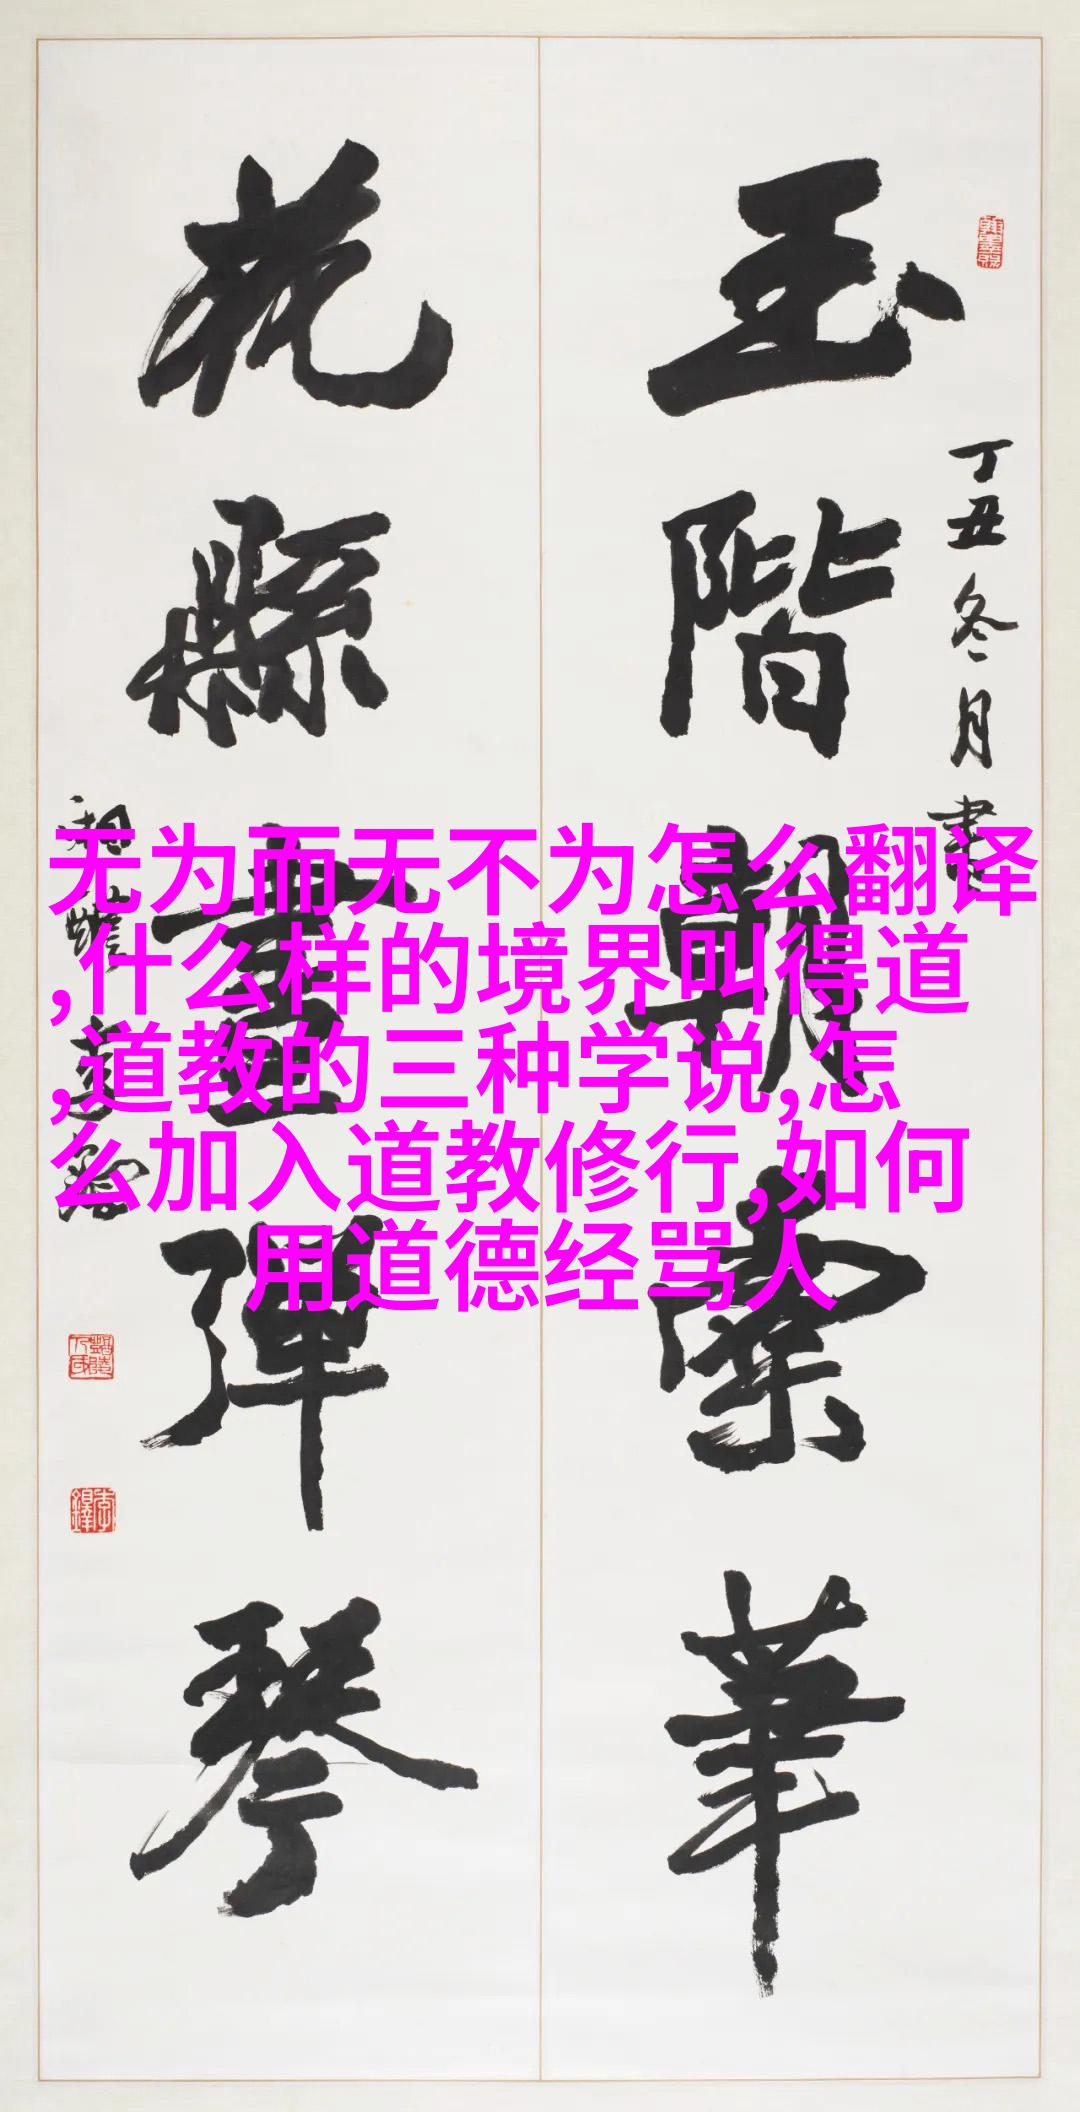 玉階朝紫華
花縣畫彈琴
丁丑冬月書
无为而无不为怎么翻译
,什么样的境界叫得道
,道教的三种学说,怎
么加入道教修行,如何
用道德经骂人